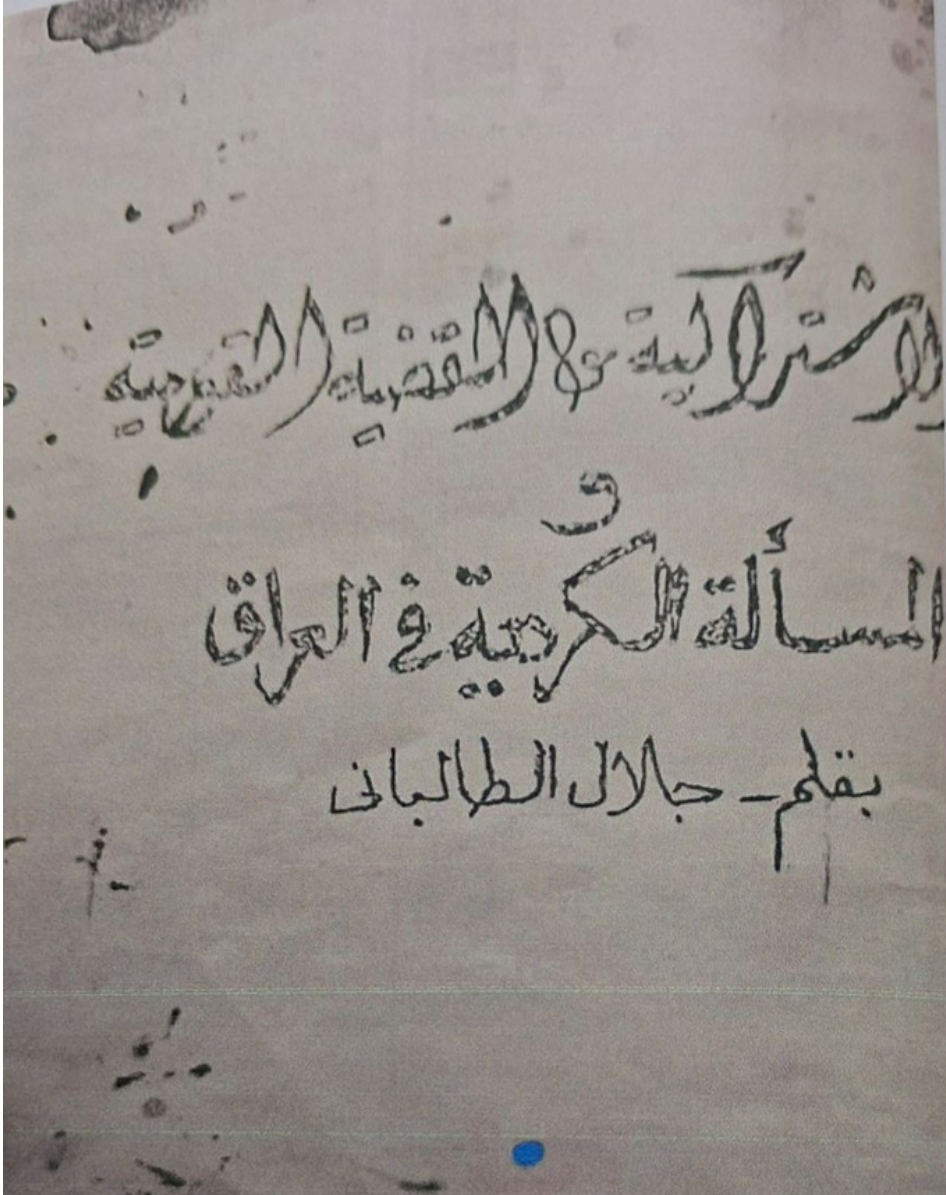 الاشتراكية والقضية القومية
و
المسألة الكُردية في العراق
بقلم - جلال الطالبانى